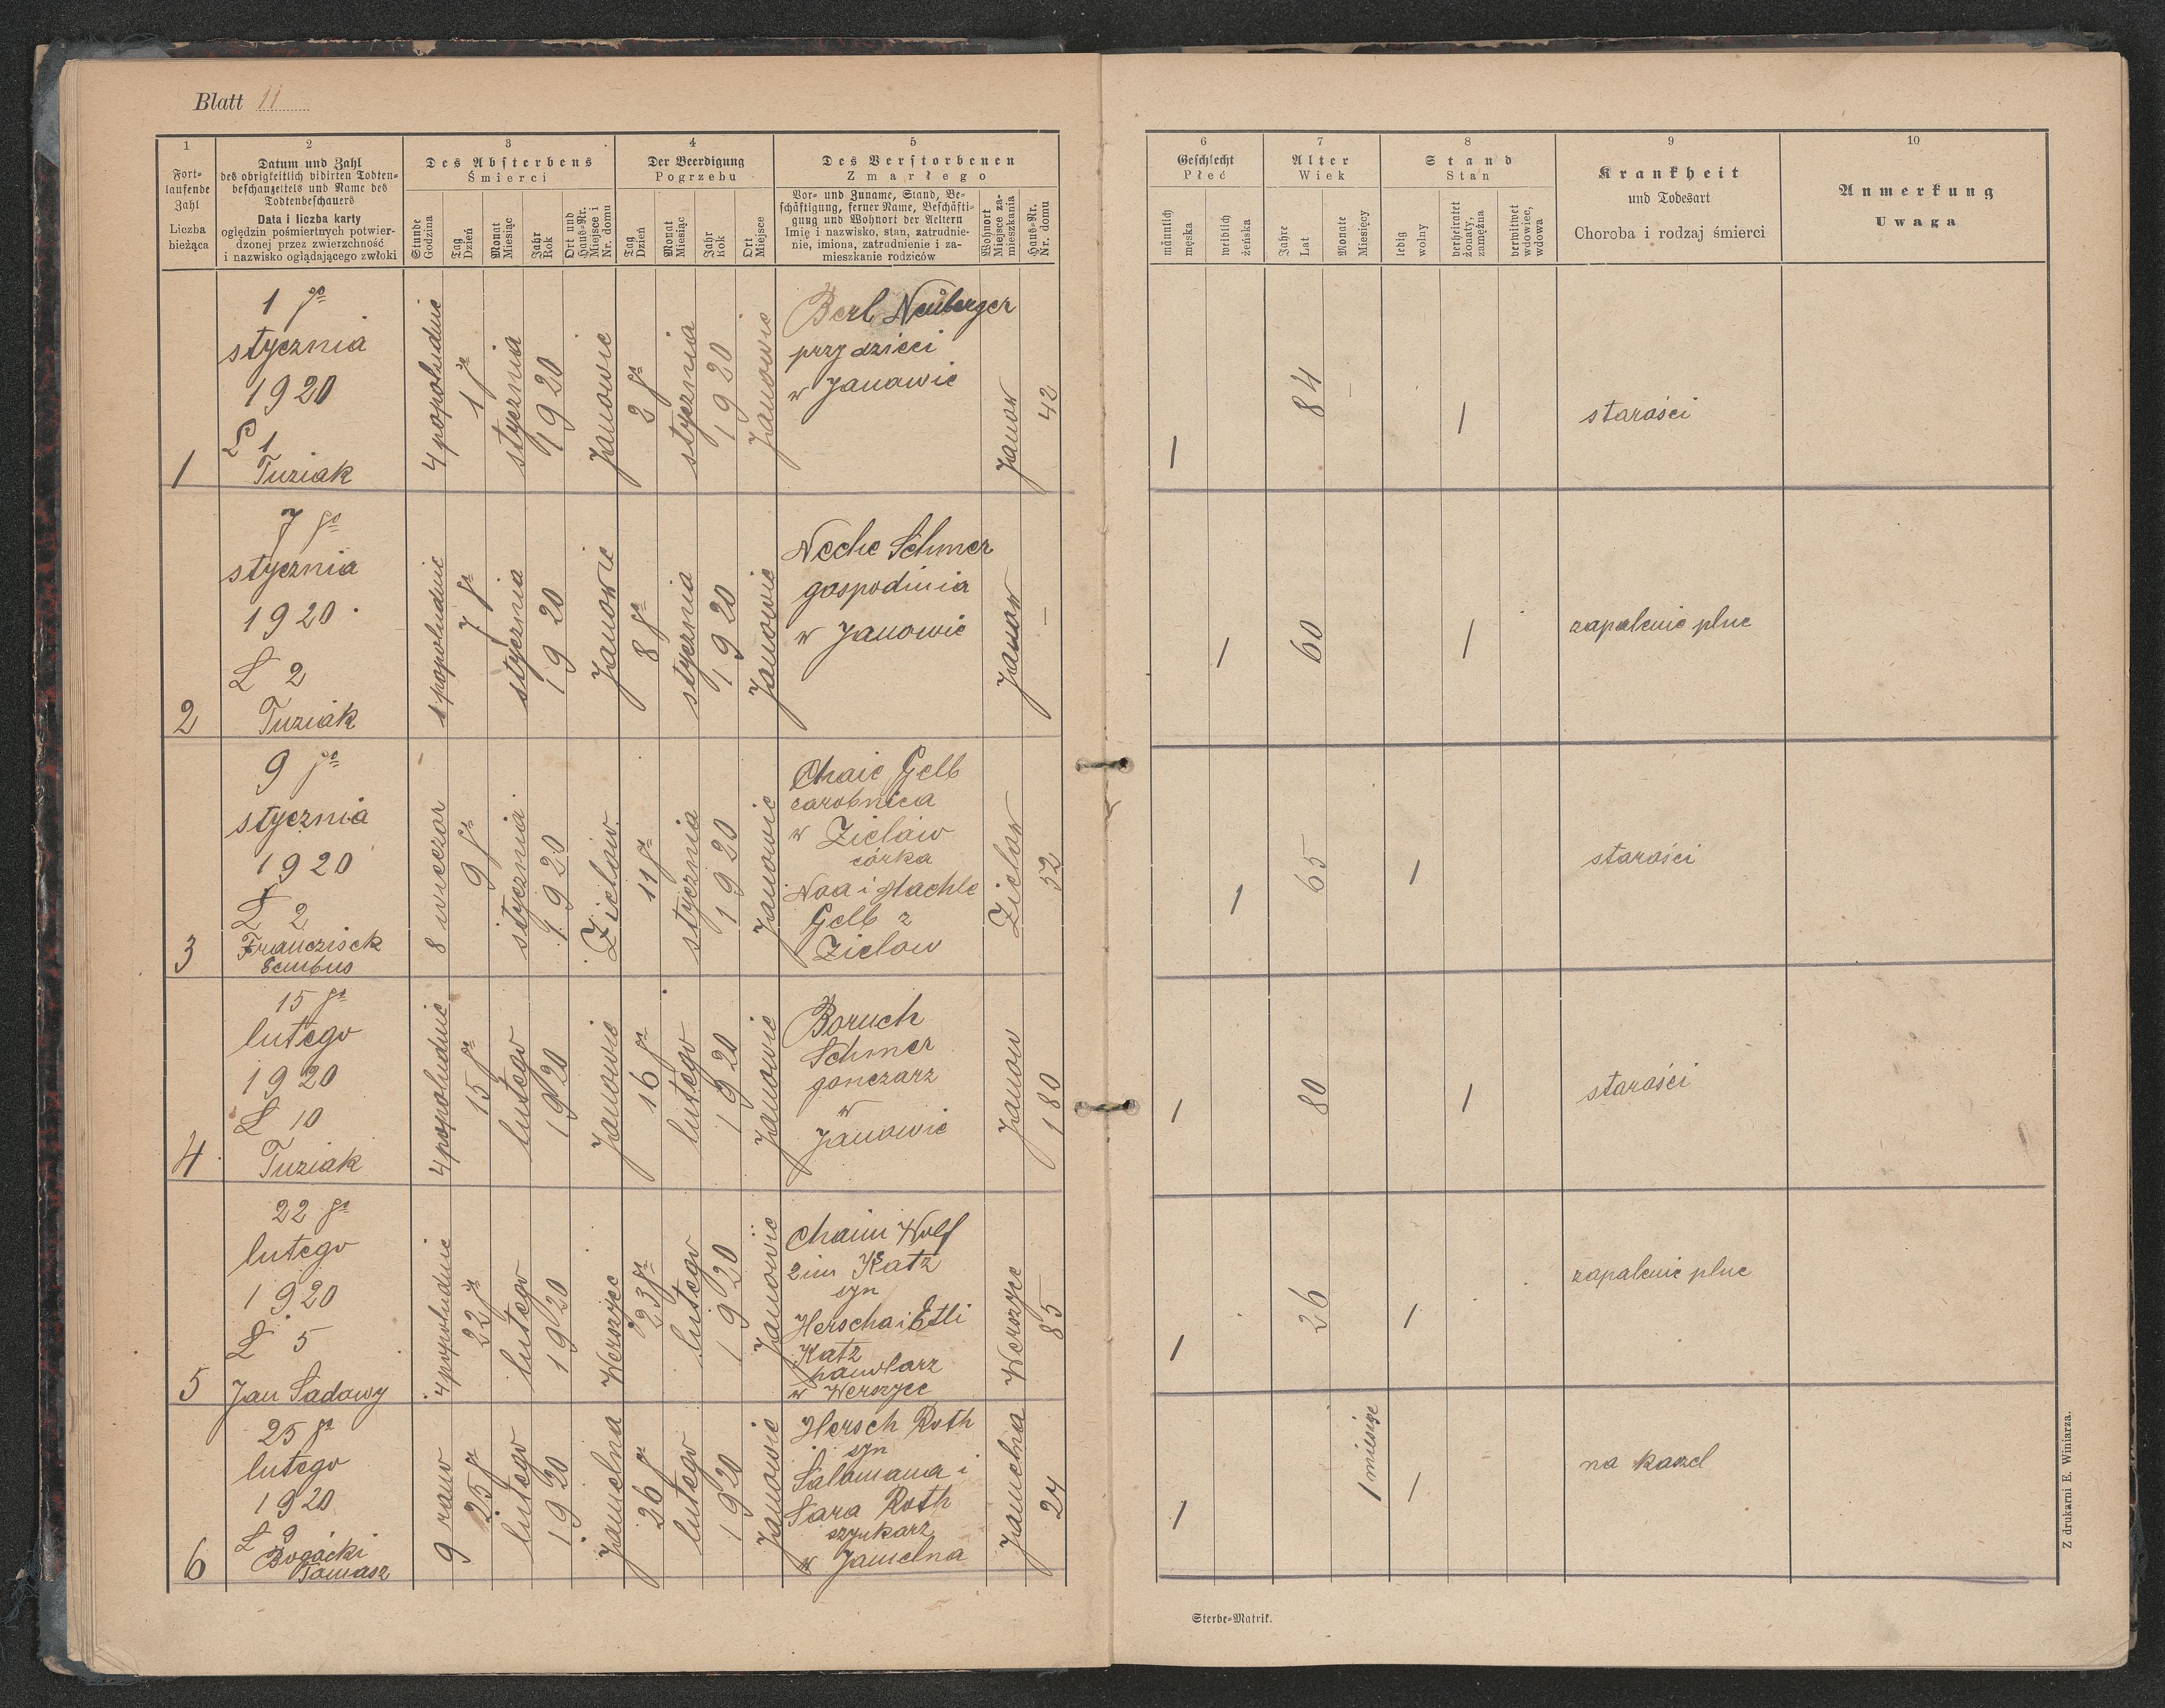 Blatt 11
1
2
3
4
5
Fort-
laufende
Zahl
Liczba
bieżąca
Datum und Zahl
des obrigkeitlich vidirten Todten-
beschauzettels und Name des
Todtenbeschauers
Data i liczba karty
oględzin pośmiertnych potwier-
dzonej przez zwierzchność
i nazwisko oglądającego zwłoki
Des Absterbens
Śmierci
Stunde
Godzina
Tag
Dzień
Monat
Miesiąc
Jahr
Rok
Ort und
Haus-Nr.
Miejsce i
Nr. domu
Der Beerdigung
Pogrzebu
Tag
Dzień
Monat
Miesiąc
Jahr
Rok
Ort
Miejsce
Des Verstorbenen
Zmarłego
Vor- und Zuname, Stand, Be-
schäftigung, ferner Name, Beschäfti-
gung und Wohnort der Aeltern
Imię i nazwisko, stan, zatrudnie-
nie, imiona, zatrudnienie i za-
mieszkanie rodziców
Wohnort
Miejsce za-
mieszkania
Haus-Nr.
Nr. domu
6
7
8
9
10
Geschlecht
Płeć
männlich
męska
weiblich
żeńska
Alter
Wiek
Jahre
Lat
Monate
Miesięcy
Stand
Stan
ledig
wolny
verheiratet
żonaty,
zamężna
verwitwet
wdowiec,
wdowa
Krankheit
und Todesart
Choroba i rodzaj śmierci
Anmerkung
Uwaga
1
1 go
stycznia
1920
L 1
Tuziak
4 popołudnie
1 go
stycznia
1920
Janowie
2 go
stycznia
1920
Janowie
Berl Neuberger
przy dzieci
w Janowie
Janow
42
1
84
1
starości
2
7 go
stycznia
1920
L 2
Tuziak
1 popołudnie
7 go
stycznia
1920
Janowie
8 go
stycznia
1920
Janowie
Neche Schmer
gospodinia
w Janowie
Janow
—
1
60
1
zapalenie pluc
3
9 go
stycznia
1920
L 2
Franczisek
Sembus
8 wieczor
9 go
stycznia
1920
Zielów
11 go
stycznia
1920
Janowie
Chaie Gelb
zarobnica
w Zielów
córka
Noa i Rachle
Gelb z
Zielow
Zielow
52
1
65
1
starości
4
15 go
lutego
1920
L 10
Tuziak
4 popołudnie
15 go
lutego
1920
Janowie
16 go
lutego
1920
Janowie
Boruch
Schmer
gonczarz
w
Janowie
Janow
180
1
80
1
starości
5
22 go
lutego
1920
L 5
Jan Sadowy
4 popołudnie
22 go
lutego
1920
Wereszyce
23 go
lutego
1920
Janowie
Chaim Wolf
2im Katz
syn
Herscha i Etli
Katz
handlarz
w Wereszyce
Wereszyce
85
1
26
1
zapalenie pluc
6
25 go
lutego
1920
L 9
Bogacki
Tomasz
9 rano
25 go
lutego
1920
Jamelna
26 go
lutego
1920
Janowie
Hersch Roth
syn
Salamana i
Sara Roth
szynkarz
w Jamelna
Jamelna
24
1
1 miesiąc
1
na kaszel
Sterbe-Matrik.
Z drukarni E. Winiarza.